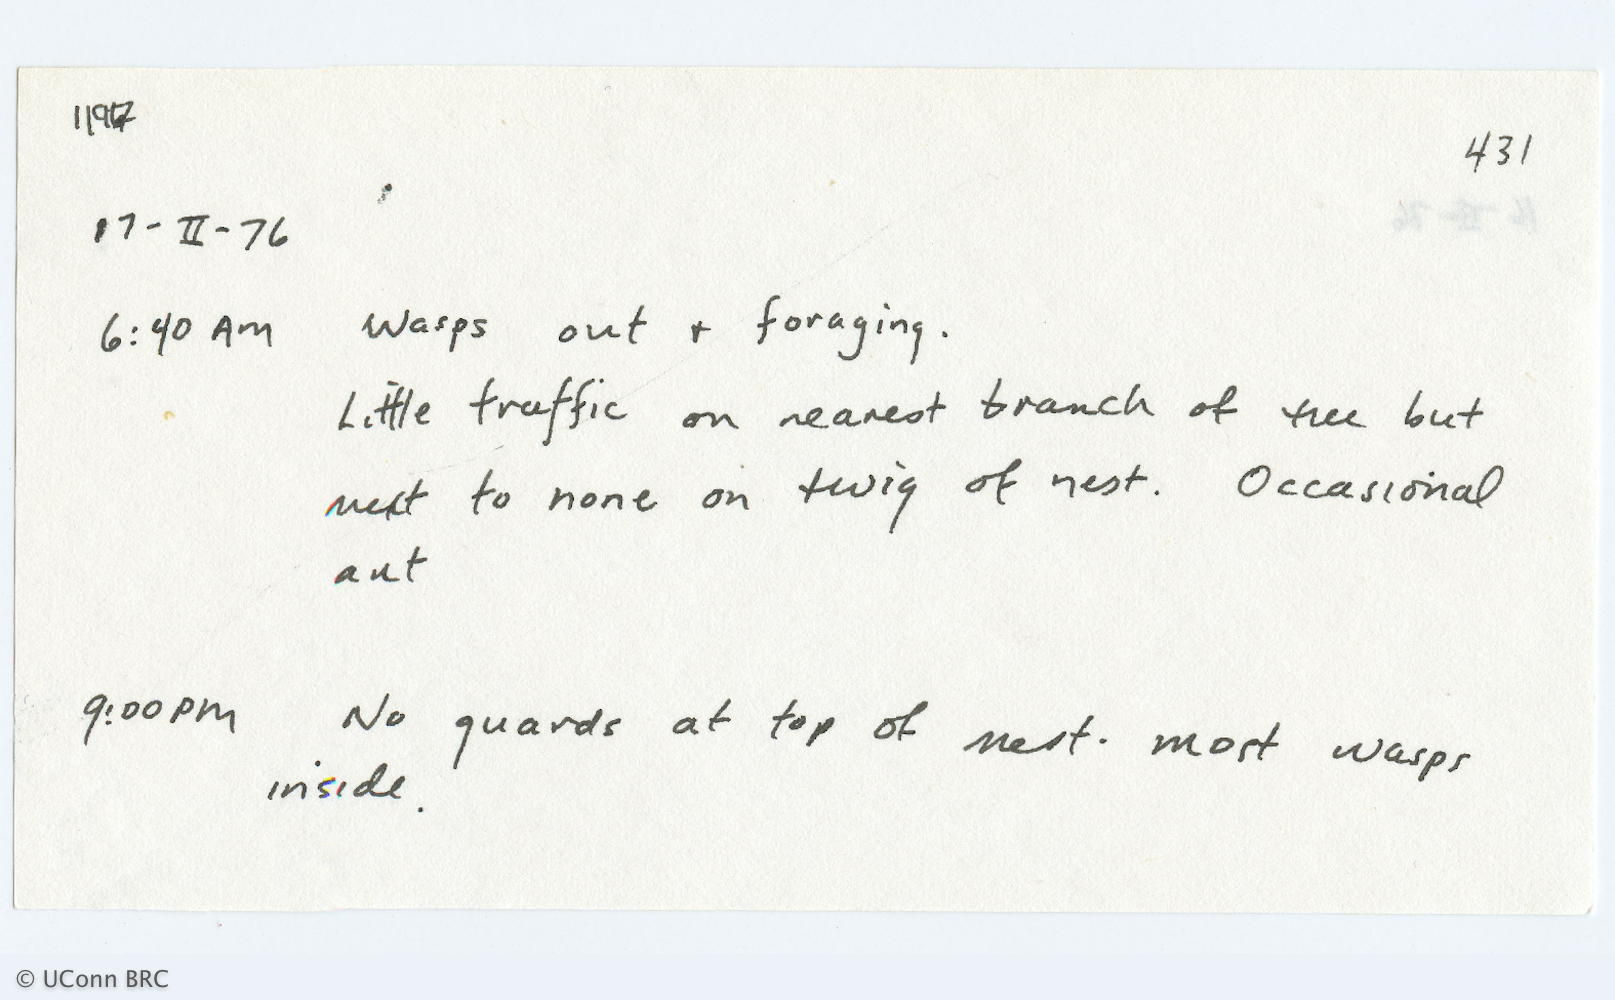 431
17-II-76
6:40 AM Wasps out + foraging.
Little traffic on nearest branch of tree but
next to none on twig of nest. Occasional
ant
9:00 PM No guards at top of nest. most wasps
inside.
© UConn BRC